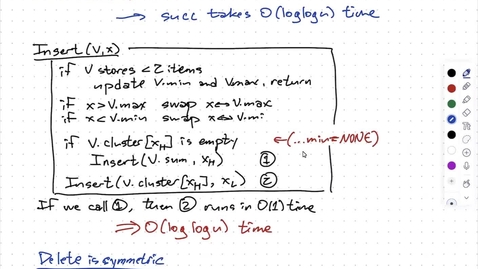 → succ takes O(loglogu) time
Insert(V,x)
if V stores < 2 items
update V.min and V.max, return
if x > V.max swap x ↔ V.max
if x < V.min swap x ↔ V.mi
if V.cluster[x_H] is empty ← (...min = NONE)
Insert(V.sum, x_H) ①
Insert(V.cluster[x_H], x_L) ②
If we call ①, then ② runs in O(1) time
⇒ O(loglogu) time
Delete is symmetric